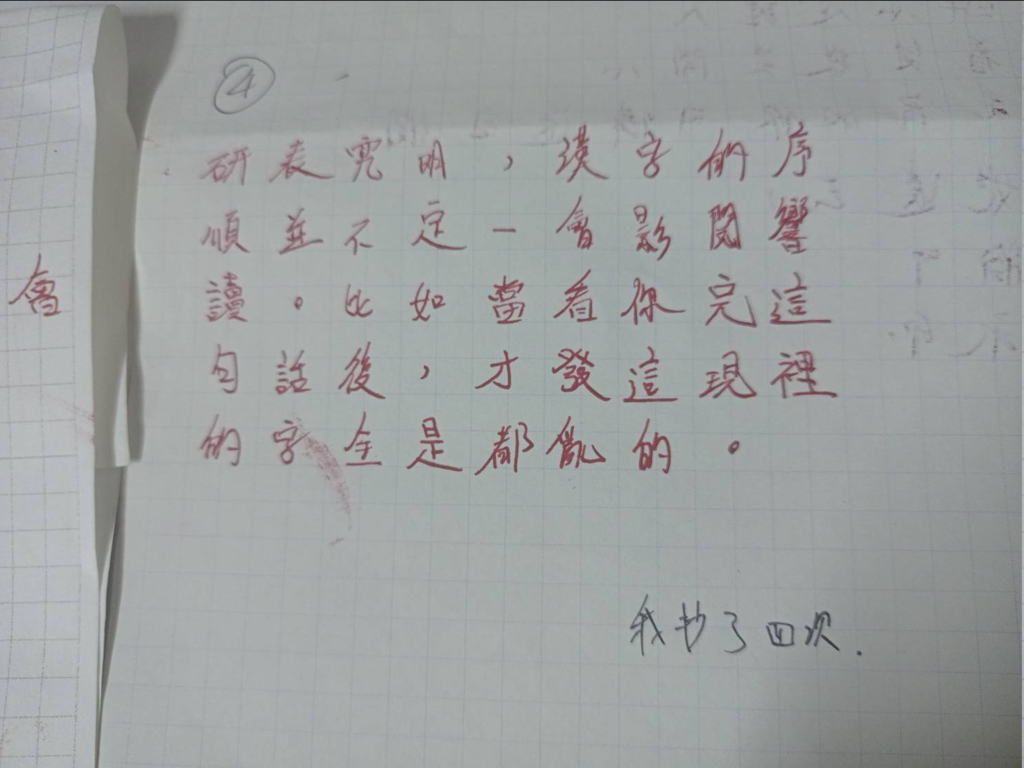 ④
研表究明,漢字的序
順並不定一會影閱響
讀。比如當看你完這
句話後,才發這現裡
的字全是都亂的。
會
我抄了四次.